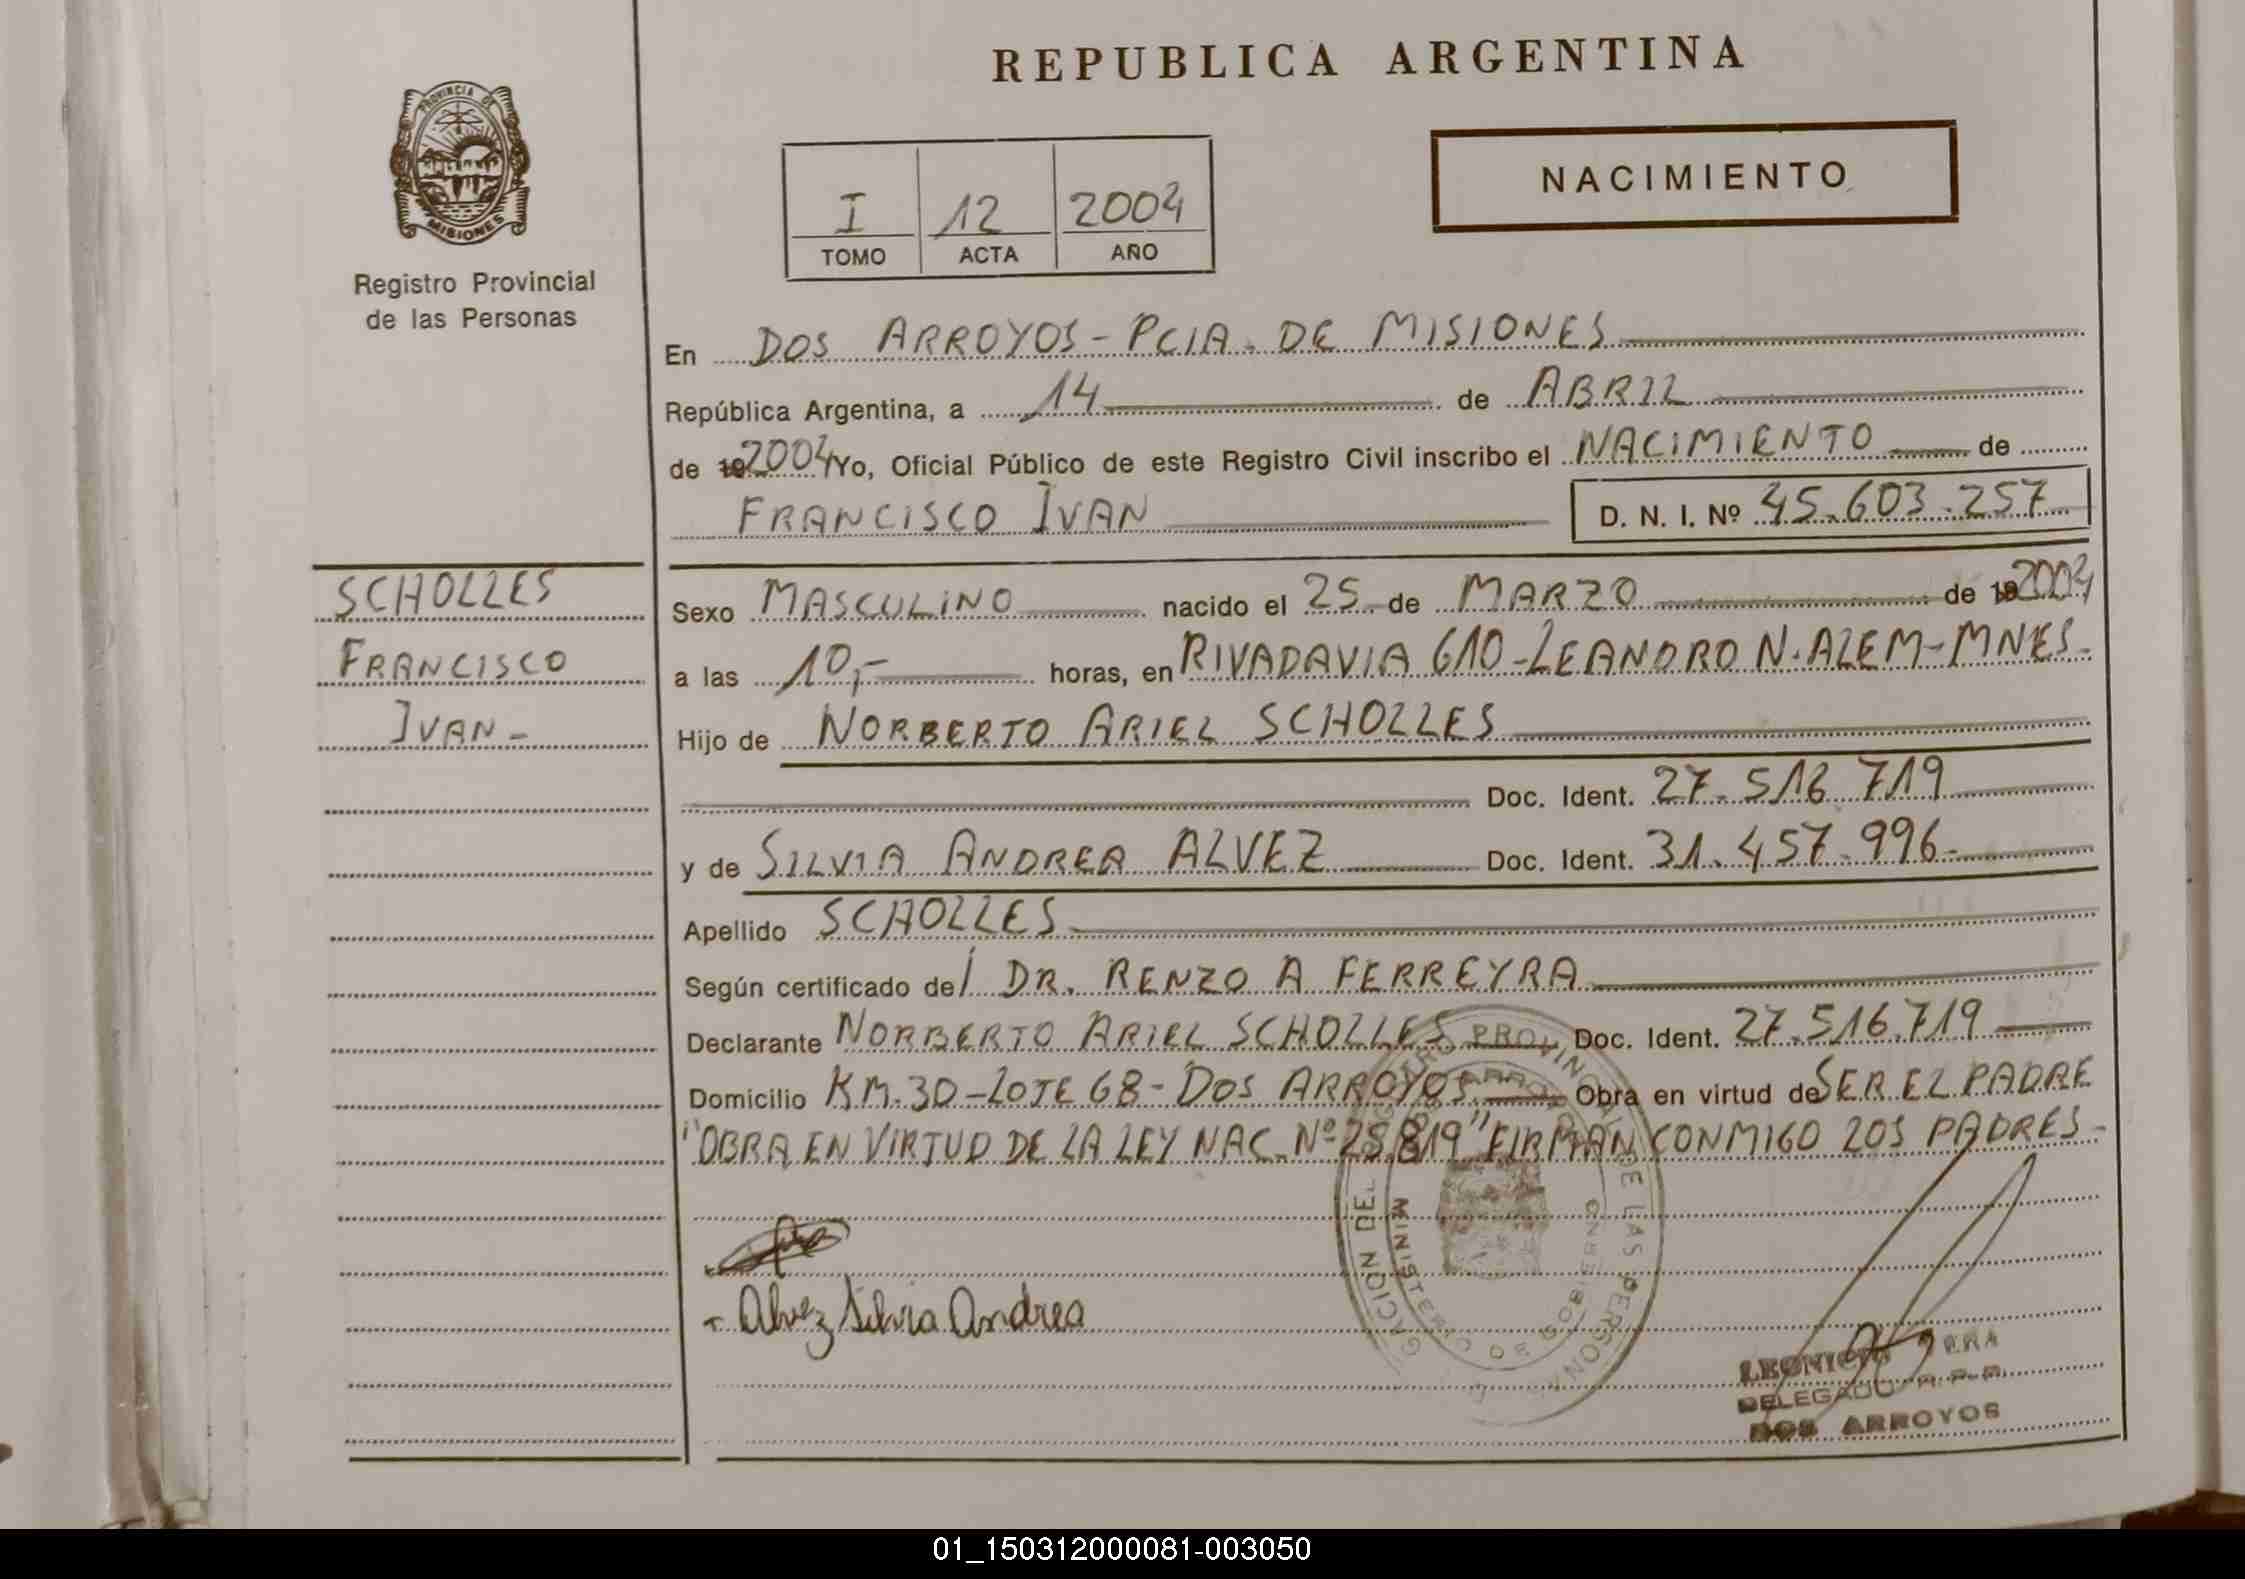 REPUBLICA ARGENTINA
PROVINCIA DE
MISIONES
Registro Provincial
de las Personas
NACIMIENTO
I 12 2004
TOMO ACTA AÑO
En DOS ARROYOS - PCIA. DE MISIONES
República Argentina, a 14 de ABRIL
de 19 2004 Yo, Oficial Público de este Registro Civil inscribo el NACIMIENTO de
FRANCISCO IVAN D. N. I. Nº 45.603.257
SCHOLLES
FRANCISCO
IVAN -
Sexo MASCULINO nacido el 25 de MARZO de 19 2004
a las 10,- horas, en RIVADAVIA 610 - LEANDRO N. ALEM - MNES -
Hijo de NORBERTO ARIEL SCHOLLES
Doc. Ident. 27.516.719
y de SILVIA ANDREA ALVEZ Doc. Ident. 31.457.996-
Apellido SCHOLLES
Según certificado del DR. RENZO A FERREYRA
Declarante NORBERTO ARIEL SCHOLLES Doc. Ident. 27.516.719
Domicilio KM.30 - LOTE 68 - DOS ARROYOS Obra en virtud de SER EL PADRE
"OBRA EN VIRTUD DE LA LEY NAC. Nº 25.819" FIRMAN CONMIGO LOS PADRES -
Alvez Silvia Andrea
DELEGADO R.P.P.
DOS ARROYOS
01_150312000081-003050